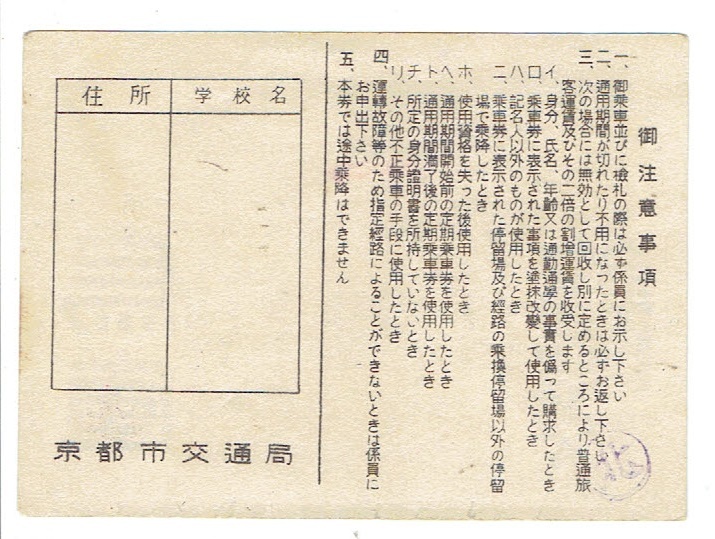 御注意事項
一、御乗車並びに検札の際は必ず係員にお示し下さい
二、通用期間が切れたり不用になったときは必ずお返し下さい
三、次の場合には無効として回収し別に定めるところにより普通旅
客運賃及びその二倍の割増運賃を収受します
イ、身分、氏名、年齢又は通勤通學の事實を偽って購求したとき
ロ、乗車券に表示された事項を塗抹改變して使用したとき
ハ、記名人以外のものが使用したとき
ニ、乗車券に表示された停留場及び経路の乗換停留場以外の停留
場で乗降したとき
ホ、使用資格を失った後使用したとき
ヘ、通用期間開始前の定期乗車券を使用したとき
ト、通用期間満了後の定期乗車券を使用したとき
チ、所定の身分證明書を所持していないとき
リ、その他不正乗車の手段に使用したとき
四、運轉故障等のため指定経路によることができないときは係員に
お申出下さい
五、本券では途中乗降はできません
学校名
住所
京都市交通局